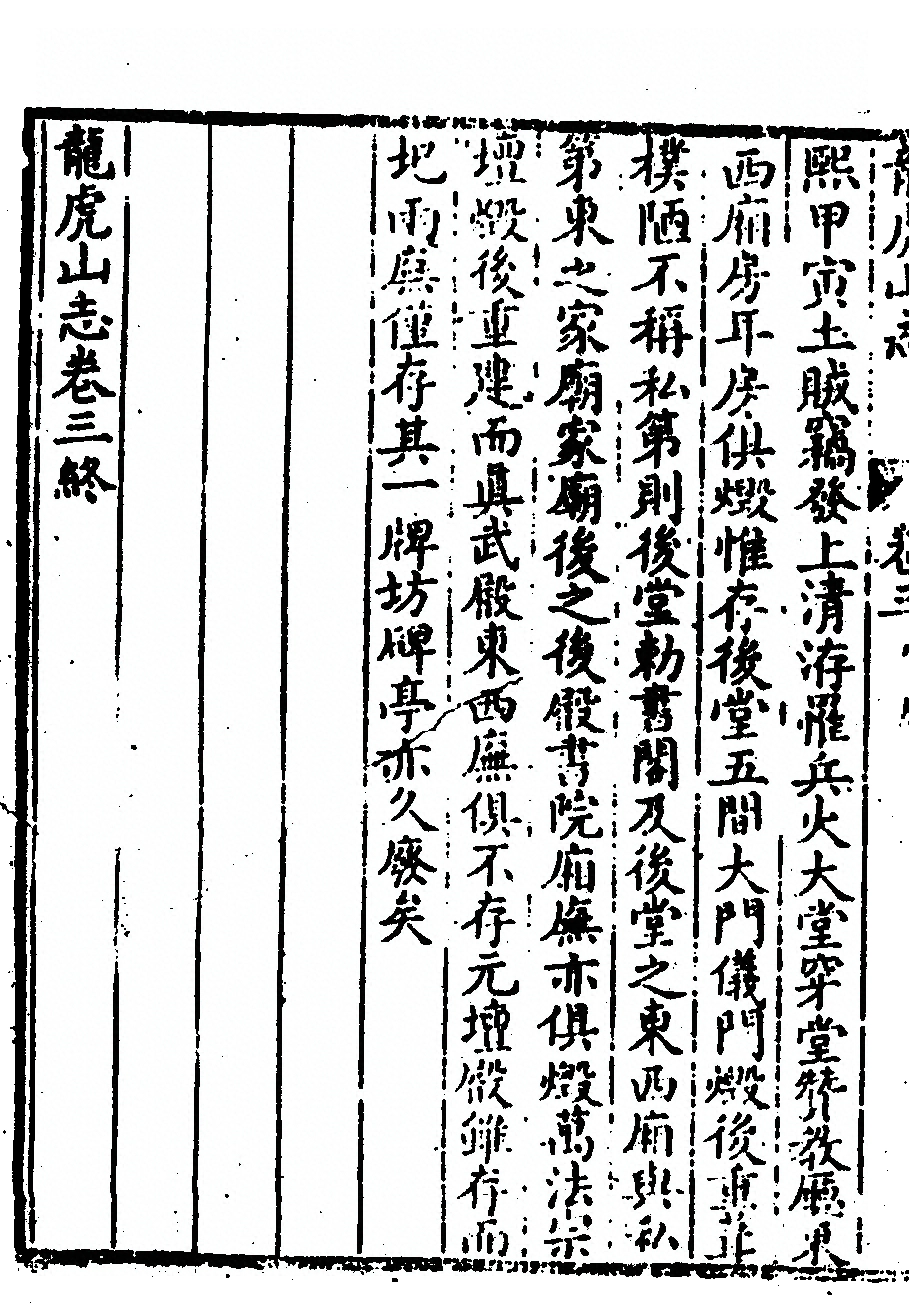 龍虎山志 卷三
熙甲寅土賊竊發上清洊罹兵火大堂穿堂贊教廳東
西廂房耳房俱燬惟存後堂五間大門儀門燬後重
樸陋不稱私第則後堂勅書閣及後堂之東西廂與私
第東之家廟家廟後之後殿書院廂廡亦俱燬萬法宗
壇燬後重建而眞武殿東西廡俱不存元壇殿雖存而
圮兩廡僅存其一牌坊碑亭亦久廢矣
龍虎山志卷三終